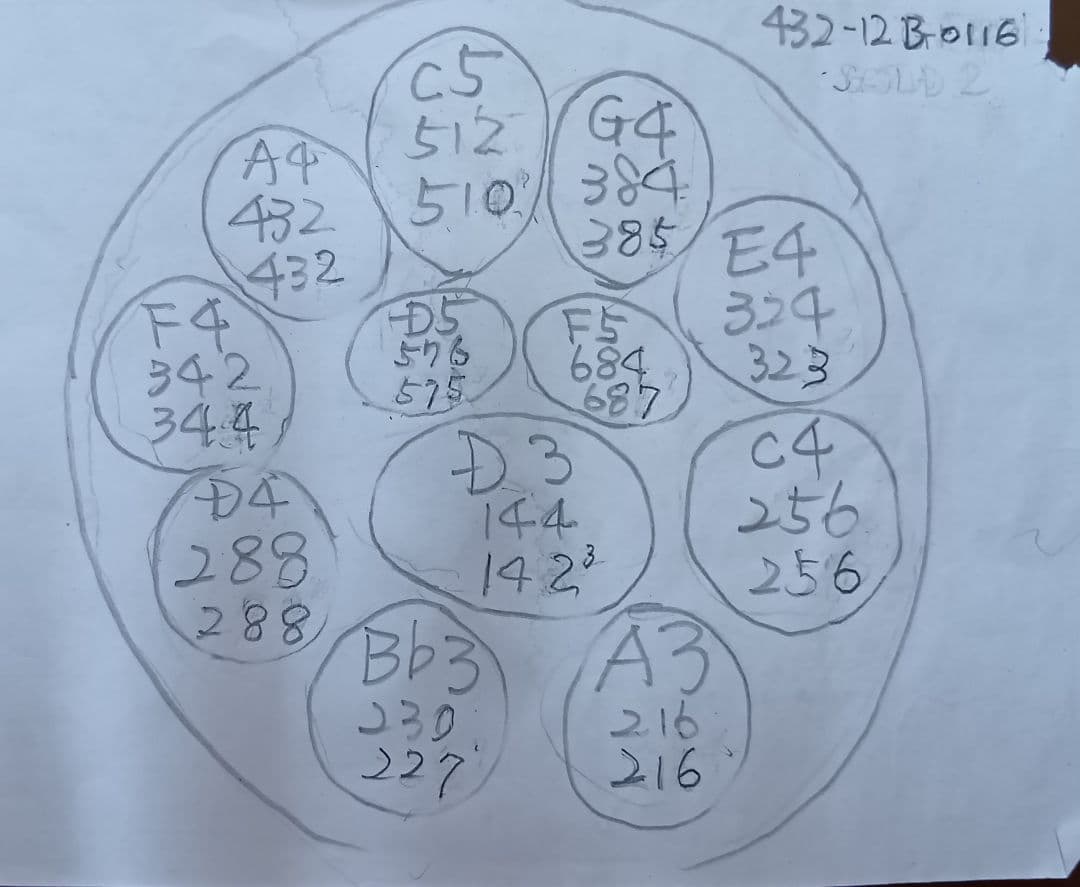 432-12 B-0116
C5
512
510
G4
384
385
A4
432
432
E4
324
323
F4
342
344
D5
576
575
F5
684
687
D3
144
142³
C4
256
256
D4
288
288
Bb3
230
227
A3
216
216